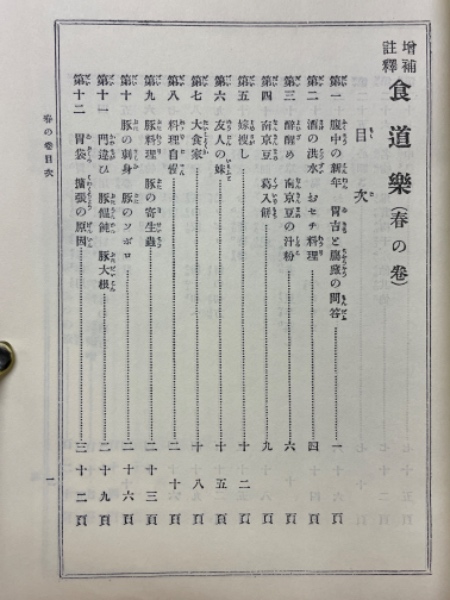 増補註釋 食道樂(春の卷)
目次
第一 腹中の新年 胃吉と膓藏の問答…一頁
第二 酒の洪水 おセチ料理…四頁
第三 醉醒め 南京豆の汁粉…六頁
第四 南京豆 葛入餅…九頁
第五 嫁搜し…十二頁
第六 友人の妹…十五頁
第七 大食家…十八頁
第八 料理自慢…二十頁
第九 豚料理 豚の寄生蟲…二十三頁
第十 豚の刺身 豚のソボロ…二十六頁
第十一 門違ひ 豚饂飩 豚大根…二十九頁
第十二 胃袋 擴張の原因…三十二頁
春の卷目次
一